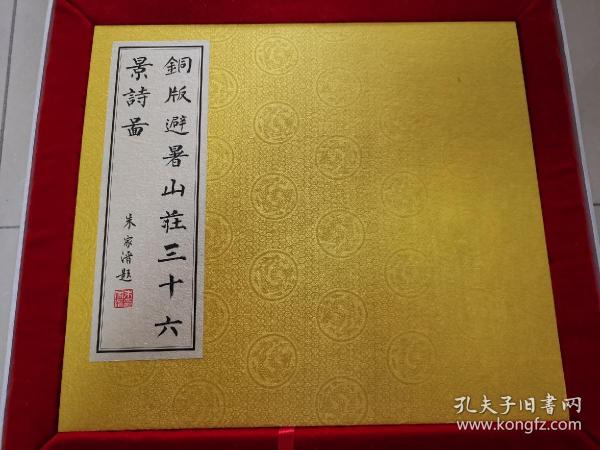 銅版避暑山莊三十六
景詩啚
朱家溍題
孔夫子旧书网
www.kongfz.com